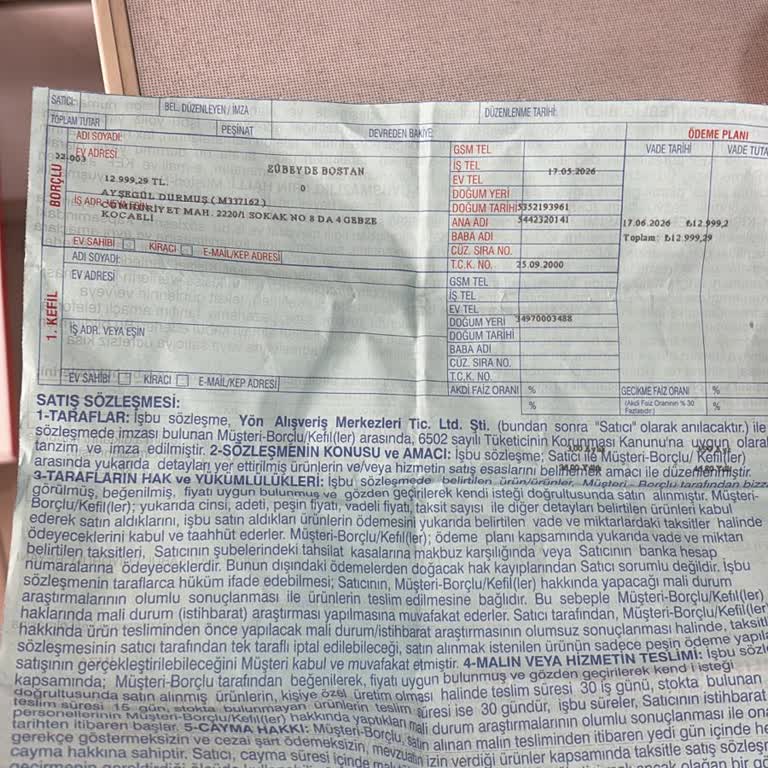 SATICI: BEL. DÜZENLEYEN / İMZA DÜZENLENME TARİHİ:
TOPLAM TUTAR PEŞİNAT DEVREDEN BAKİYE ÖDEME PLANI
BORÇLU
ADI SOYADI: GSM TEL VADE TARİHİ VADE TUTA
22.003 EV ADRESİ ZÜBEYDE BOSTAN İŞ TEL 17.05.2026
12.999,29 TL. 0 EV TEL
AYŞEGÜL DURMUŞ ( M337162 ) DOĞUM YERİ
İŞ ADR. CUMHURİYET MAH. 2220/1 SOKAK NO 8 DA 4 GEBZE DOĞUM TARİHİ 5352193961
KOCAELİ ANA ADI 5442320141 17.06.2026 ₺12.999,2
BABA ADI Toplam: ₺12.999,29
EV SAHİBİ KİRACI E-MAİL/KEP ADRESİ CÜZ. SIRA NO.
T.C.K. NO. 25.09.2000
1. KEFİL
ADI SOYADI:
EV ADRESİ GSM TEL
İŞ TEL
EV TEL
İŞ ADR. VEYA EŞİN DOĞUM YERİ 34970003488
DOĞUM TARİHİ
BABA ADI
CÜZ. SIRA NO.
EV SAHİBİ KİRACI E-MAİL/KEP ADRESİ T.C.K. NO.
AKDİ FAİZ ORANI % GECİKME FAİZ ORANI %
% (Akdi Faiz Oranının % 30 Fazlasıdır.) %
SATIŞ SÖZLEŞMESİ:
1-TARAFLAR: İşbu sözleşme, Yön Alışveriş Merkezleri Tic. Ltd. Şti. (bundan sonra "Satıcı" olarak anılacaktır.) ile
sözleşmede imzası bulunan Müşteri-Borçlu/Kefil(ler) arasında, 6502 sayılı Tüketicinin Korunması Kanunu'na uygun olarak
tanzim ve imza edilmiştir. 2-SÖZLEŞMENİN KONUSU ve AMACI: İşbu sözleşme; Satıcı ile Müşteri-Borçlu/ Kefil(ler)
arasında yukarıda detayları yer ettirilmiş ürünlerin ve/veya hizmetin satış esaslarını belirlemek amacı ile düzenlenmiştir.
3-TARAFLARIN HAK ve YÜKÜMLÜLÜKLERİ: İşbu sözleşmede belirtilen ürün/ürünler, Müşteri- Borçlu tarafından bizz
görülmüş, beğenilmiş, fiyatı uygun bulunmuş ve gözden geçirilerek kendi isteği doğrultusunda satın alınmıştır. Müşteri-
Borçlu/Kefil(ler); yukarıda cinsi, adeti, peşin fiyatı, vadeli fiyatı, taksit sayısı ile diğer detayları belirtilen ürünleri kabul
ederek satın aldıklarını, işbu satın aldıkları ürünlerin ödemesini yukarıda belirtilen vade ve miktarlardaki taksitler halinde
ödeyeceklerini kabul ve taahhüt ederler. Müşteri-Borçlu/Kefil(ler); ödeme planı kapsamında yukarıda vade ve miktarı
belirtilen taksitleri, Satıcının şubelerindeki tahsilat kasalarına makbuz karşılığında veya Satıcının banka hesap
numaralarına ödeyeceklerdir. Bunun dışındaki ödemelerden doğacak hak kayıplarından Satıcı sorumlu değildir. İşbu
sözleşmenin taraflarca hüküm ifade edebilmesi; Satıcının, Müşteri-Borçlu/Kefil(ler) hakkında yapacağı mali durum
araştırmalarının olumlu sonuçlanması ile ürünlerin teslim edilmesine bağlıdır. Bu sebeple Müşteri-Borçlu/Kefil(ler)
haklarında mali durum (istihbarat) araştırması yapılmasına muvafakat ederler. Satıcı tarafından, Müşteri-Borçlu/Kefil(ler
hakkında ürün tesliminden önce yapılacak mali durum/istihbarat araştırmasının olumsuz sonuçlanması halinde, taksitl
sözleşmesinin satıcı tarafından tek taraflı iptal edilebileceği, satın alınmak istenilen ürünün sadece peşin ödeme yapıla
satışının gerçekleştirilebileceğini Müşteri kabul ve muvafakat etmiştir. 4-MALIN VEYA HİZMETİN TESLİMİ: İşbu sözl
kapsamında; Müşteri-Borçlu tarafından beğenilerek, fiyatı uygun bulunmuş ve gözden geçirilerek kend i isteği
doğrultusunda satın alınmış ürünlerin, kişiye özel üretim olması halinde teslim süresi 30 iş günü, stokta bulunan
teslim süresi 15 gün, stokta bulunmayan ürünlerin teslim süresi ise 30 gündür, işbu süreler, Satıcının istihbarat
personellerinin Müşteri-Borçlu/Kefil(ler) hakkında yaptıkları mali durum araştırmalarının olumlu sonuçlanması ile ona
tarihten itibaren başlar. 5-CAYMA HAKKI: Müşteri-Borçlu, satın alınan malın tesliminden itibaren yedi gün içinde he
gerekçe göstermeksizin ve cezai şart ödemeksizin, mevzuatın izin verdiği ürünler kapsamında taksitle satış sözleşm
cayma hakkına sahiptir. Satıcı, cayma süresi içinde